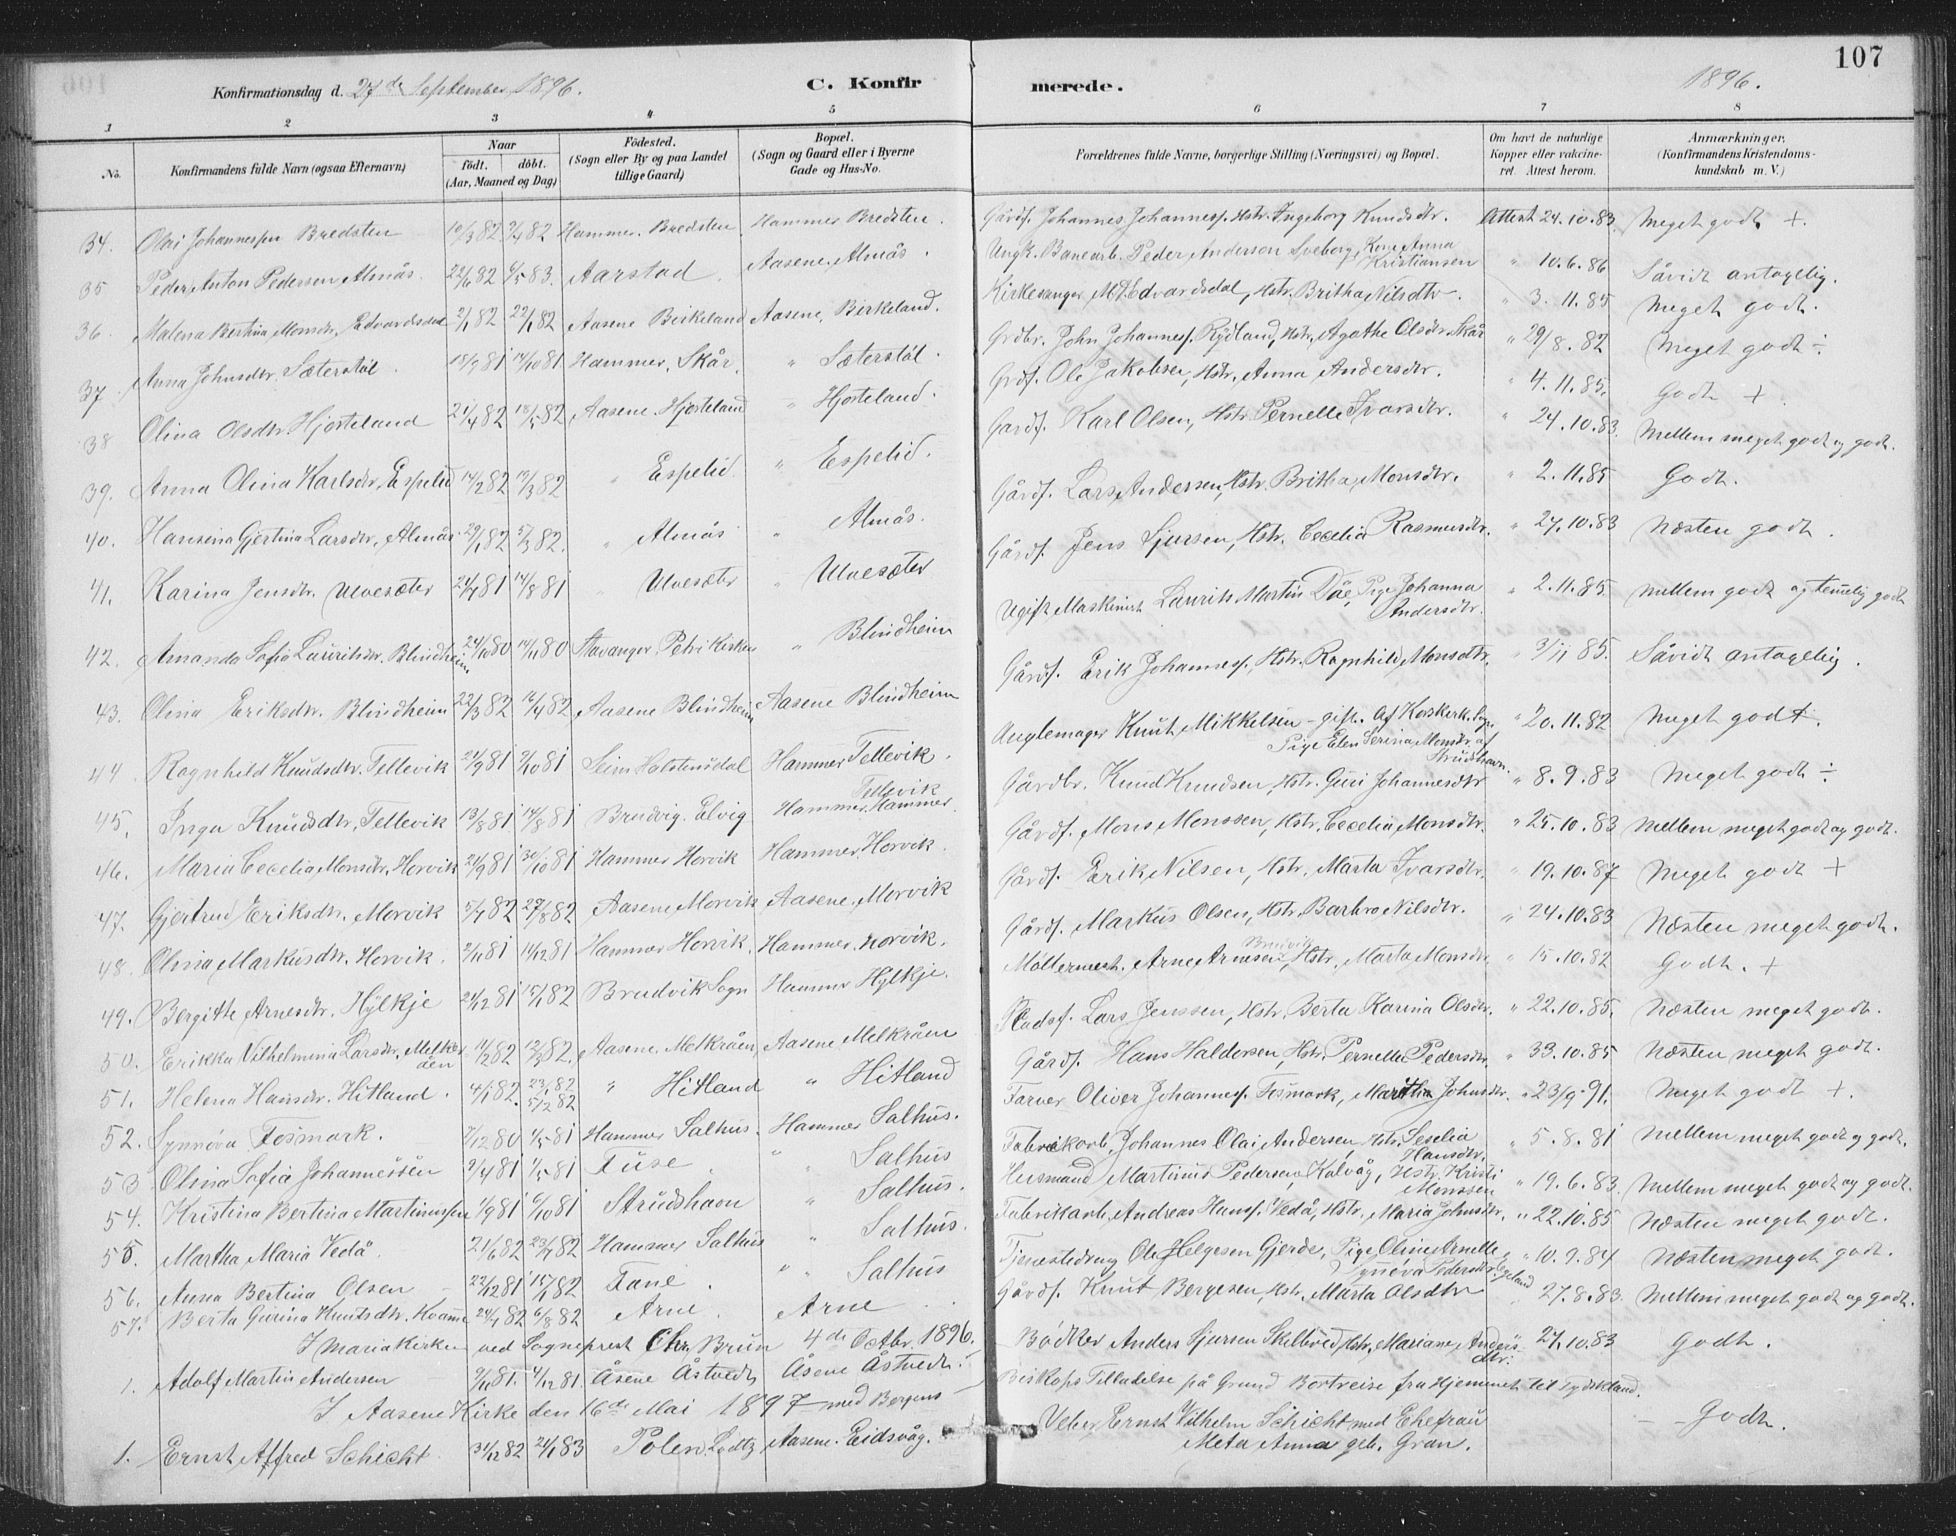 107
Konfirmationsdag d. 27de September 1896. C. Konfirmerede. 1896.
1 2 3 4 5 6 7 8
No. Konfirmandens fulde Navn (ogsaa Efternavn) Naar födt. döbt. (Aar, Maaned og Dag) Födested. (Sogn eller By og paa Landet tillige Gaard) Bopæl. (Sogn og Gaard eller i Byerne Gade og Hus-No. Forældrenes fulde Navne, borgerlige Stilling (Næringsvei) og Bopæl. Om havt de naturlige Kopper eller vakcineret. Attest herom. Anmærkninger, (Konfirmandens Kristendomskundskab m. V.)
34. Olai Johannessen Bredsten 82 82 Hammer. Bredsten Hammer Bredsten. Gårdf. Johannes Johannesf. Hstr. Ingeborg Knudsdtr. Attest 24.10.83 Meget godt +.
35 Peder Anton Pedersen Almås. 22/6 82 6/5 83. Aarstad. Aasene. Almås. Ungk. Banearb. Peder Anderson Sveborg, Kone Anna Kristiansen " 10.6.86 Såvidt antagelig.
36. Malena Bertina Monsdtr. Edvardsdal 2/1 82 22/1 82 Aasene Birkeland Aasene, Birkeland. Kirkesanger M. Edvardsdal, Hstr. Britha Nilsdtr. " 3.11.85 Meget godt.
37 Anna Johnsdtr. Sæterstøl. 18/9 81 14/10 81 Hammer, Skår. " Sæterstøl. Grdbr. John Johannesf. Rydland, Hstr. Agathe Olsdtr. Skår " 29/8.82 Meget godt ÷.
38 Olina Olsdtr. Hjorteland 21/4 82 18/5 82 Aasene. Hjorteland " Hjorteland. Grdf. Ole Jakobsen, Hstr. Anna Andersdtr. " 4.11.85. Godt +
39. Anna Olina Karlsdtr. Espelid 14/2 82 19/3 82 " Espelid. " Espelid. Gardf. Karl Olsen, Hstr. Pernelle Ivarsdtr. " 24.10.83. Mellem meget godt og godt.
40. Hansina Gjertina Larsdtr. Almås 29/1 82 5/3 82. " Almås " Almås. Gårdf. Lars Andersen, Hstr. Britha Monsdtr. " 2.11.85 Godt.
41. Karina Jensdtr. Ulvesæter 24/7 81 14/8 81 " Ulvesæter " Ulvesæter Gårdf. Jens Sjursen, Hstr. Cecelia Rasmusdtr. " 27.10.83 Næsten godt.
42. Amanda Sofia Lauritsdtr. Blindheim 24/10 80 14/11 80 Stavanger. Petri Kirken " Blindheim Ugift Maskinist Laurits Martin Dåe, Pige Johanna Andersdtr. " 2.11.85. Mellem godt og temelig godt
43. Olina Eriksdtr. Blindheim 22/3 82 16/4 82 Aasene Blindheim Aasene Blindheim Gårdf. Erik Johannesf. Hstr. Ragnhild Monsdtr. " 3/11 85. Såvidt antagelig.
44 Ragnhild Knudsdtr. Tellevik 24/9 81 9/10 81 Seim Hammer Tellevik. Knut Mikkelsen - gift. Af Korskirk. Sogn. Pige Elen Serina Monsdtr. af Strudshavn. " 20.11.82 Meget godt.
45. Inga Knudsdtr. Tellevik 13/8 81 14/8 81 Brudvig. Elvig Tellevik Hammer. Hammer. Gårdbr. Knud Knudsen, Hstr. Guri Johannesdtr " 8.9.83 Meget godt ÷
46. Maria Cecelia Monsdtr. Horvik 21/9 81 30/10 81 Hammer Horvik Hammer. Horvik. Gårdf. Mons Monssen, Hstr. Cecelia Monsdtr. " 25.10.83 Mellem meget godt og godt.
47. Gjertrud Eriksdtr. Morvik 5/7 82 27/8 82 Aasene. Morvik Aasene, Morvik Gårdf. Erik Nilsen, Hstr. Marta Ivarsdtr. " 19.10.87 Meget godt +
48. Olina Markusdtr. Horvik. 2/11 81 11/12 81 Hammer Horvik. Hammer. Horvik. Gårdf. Markus Olsen, Hstr. Barbro Nilsdtr. " 24.10.83 Næsten meget godt.
49. Bergitte Arnesdtr. Hylkje 21/12 81 15/1 82 Brudvik Sogn Hammer Hylkje. Möllermest. Arne Arnesen Brudvig, Hstr. Marta Monsdtr. " 15.10.82 Godt. +
50. Erikka Vilhelmina Larsdtr. Melkeråen 11/2 82 12/3 82. Aasene. Melkråen Aasene Melkråen Pladsf. Lars Jenssen, Hstr. Berta Karina Olsdtr. " 22.10.85. Næsten meget godt.
51. Helena Hansdtr. Hitland. 4/1 82. 23/1 82 5/12 82 " Hitland " Hitland Gårdf. Hans Haldersen, Hstr. Pernelle Pedersdtr. " 33.10.85 Næsten meget godt.
52. Synnöva Fosmark. 7/12 80 1/5 81 Hammer Salhus. Hammer Salhus. Farver Oliver Johannesf. Fosmark, Maritha Johnsdtr. " 23/9.91. Meget godt +.
53 Olina Sofia Johannessen 9/4 81 1/5 81 Fuse. " Salhus Fabrikarb. Johannes Olai Andersen, Hstr. Seselia Hansdtr. " 5.8.81 Mellem meget godt og godt.
54. Kristina Bertina Martinussen 1/9 81 9/10 81 Strudshavn " Salhus. Husmand Martinus Pedersen, Kalvåg, Hstr. Kristi Monssen " 19.6.83. Mellem meget godt og godt.
55. Martha Maria Vedå. 21/6 82 23/7 82 Hammer Salhus " Salhus. Fabrikarb. Andreas Hansf. Vedå, Hstr. Maria Johnsdtr. " 22.10.85 Næsten meget godt.
56. Anna Bertina Olsen 22/12 81 15/1 82 Fane. " Salhus Tjenestedreng Ole Helgesen Gjerde, Pige Oline Arnette Egeland " 10.9.84 Næsten meget godt.
57. Berta Gurina Knutsdtr. Kvamme 24/7 82 6/8 82 Arne. Arne Gårdf. Knut Bergesen, Hstr. Marta Olsdtr Synnéva Pedersdtr. 27.8.83. Mellem meget godt og godt.
I Mariakirken ved Sogneprest Chr. Brun 4de Octbr. 1896.
1. Adolf Martin Andersen 9/11 81. 4/12 81 Åsene Åstvedt Åsene Åstvedt. Bödker Anders Sjursen Skeltved, Hstr. Mariane Andersdtr. 27.10.83 Godt.
I Aasene Kirke den 16de Mai 1897 med Bergens Biskops Tilladelse på Grund Bortreise fra Hjemmet til Tydskland.
1. Ernst Alfred Schicht 31/12 82 21/1 83 Polen Lodtz Aasene. Eidsvåg. Veber Ernst Vilhelm Schicht med Ehefrau Meta Anna geb. Gran. — Godt.